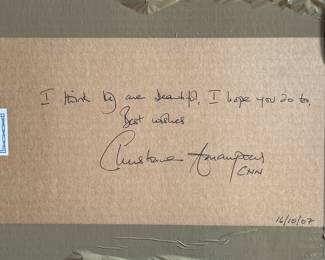 I think they are beautiful, I hope you do too.
Best wishes
Christiane Amanpour
CNN
16/10/07